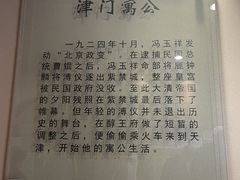 津门寓公
一九二四年十月，冯玉祥发
动“北京政变”。在逮捕民国总
统曹锟之后，冯玉祥命部将鹿钟
麟将溥仪逐出紫禁城，整座皇宫
被民国政府没收。至此大清帝国
的夕阳残照在紫禁城最后落下了
帷幕。但年轻的溥仪并未退出历
史的舞台，在醇王府做了短暂的
调整之后，便偷偷乘火车来到天
津，开始他的寓公生活。